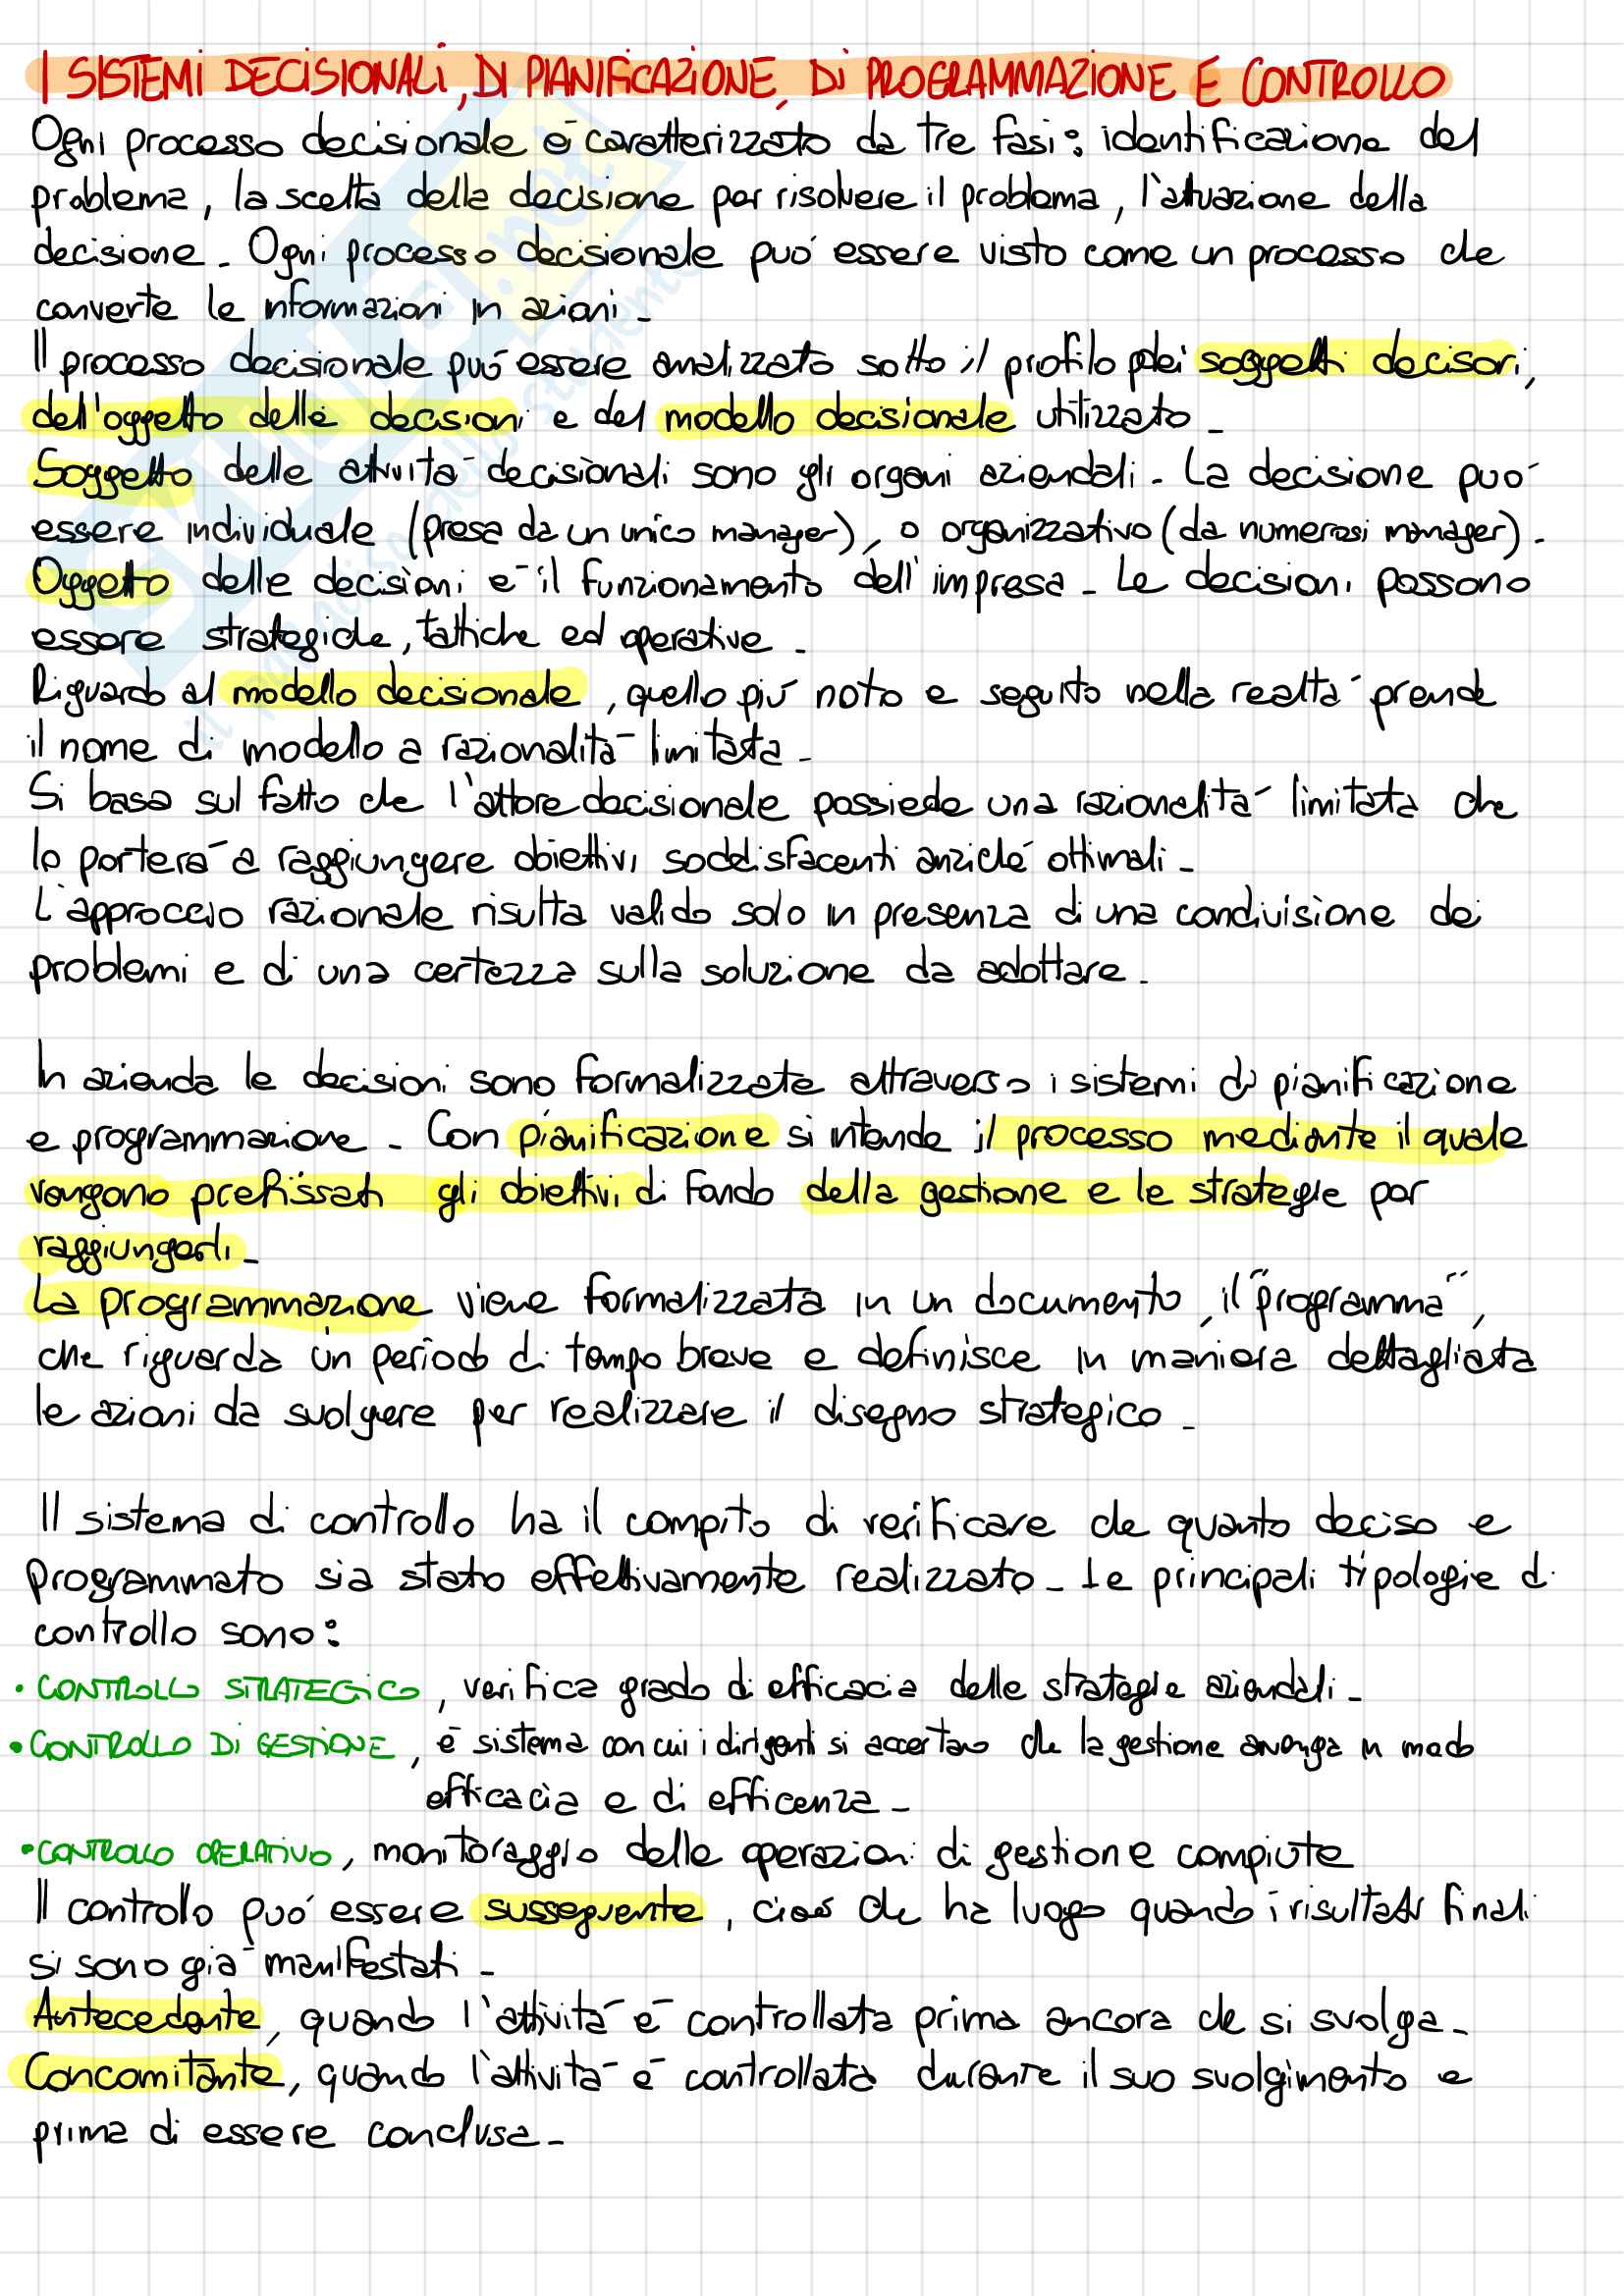 I SISTEMI DECISIONALI, DI PIANIFICAZIONE, DI PROGRAMMAZIONE E CONTROLLO
Ogni processo decisionale è caratterizzato da tre fasi: identificazione del
problema, la scelta della decisione per risolvere il problema, l'attuazione della
decisione. Ogni processo decisionale può essere visto come un processo che
converte le informazioni in azioni.
Il processo decisionale può essere analizzato sotto il profilo dei soggetti decisori,
dell'oggetto delle decisioni e del modello decisionale utilizzato.
Soggetto delle attività decisionali sono gli organi aziendali. La decisione può
essere individuale (presa da un unico manager), o organizzativo (da numerosi manager).
Oggetto delle decisioni è il funzionamento dell'impresa. Le decisioni possono
essere strategiche, tattiche ed operative.
Riguardo al modello decisionale, quello più noto e seguito nella realtà prende
il nome di modello a razionalità limitata.
Si basa sul fatto che l'attore decisionale possiede una razionalità limitata che
lo porterà a raggiungere obiettivi soddisfacenti anziché ottimali.
L'approccio razionale risulta valido solo in presenza di una condivisione dei
problemi e di una certezza sulla soluzione da adottare.
In azienda le decisioni sono formalizzate attraverso i sistemi di pianificazione
e programmazione. Con pianificazione si intende il processo mediante il quale
vengono prefissati gli obiettivi di fondo della gestione e le strategie per
raggiungerli.
La programmazione viene formalizzata in un documento, il "programma",
che riguarda un periodo di tempo breve e definisce in maniera dettagliata
le azioni da svolgere per realizzare il disegno strategico.
Il sistema di controllo ha il compito di verificare che quanto deciso e
programmato sia stato effettivamente realizzato. Le principali tipologie di
controllo sono:
• CONTROLLO STRATEGICO, verifica grado di efficacia delle strategie aziendali.
• CONTROLLO DI GESTIONE, è sistema con cui i dirigenti si accertano che la gestione avvenga in modo
efficacia e di efficenza.
• CONTROLLO OPERATIVO, monitoraggio delle operazioni di gestione compiute
Il controllo può essere susseguente, cioè che ha luogo quando i risultati finali
si sono già manifestati.
Antecedente, quando l'attività è controllata prima ancora che si svolga.
Concomitante, quando l'attività è controllata durante il suo svolgimento e
prima di essere conclusa.